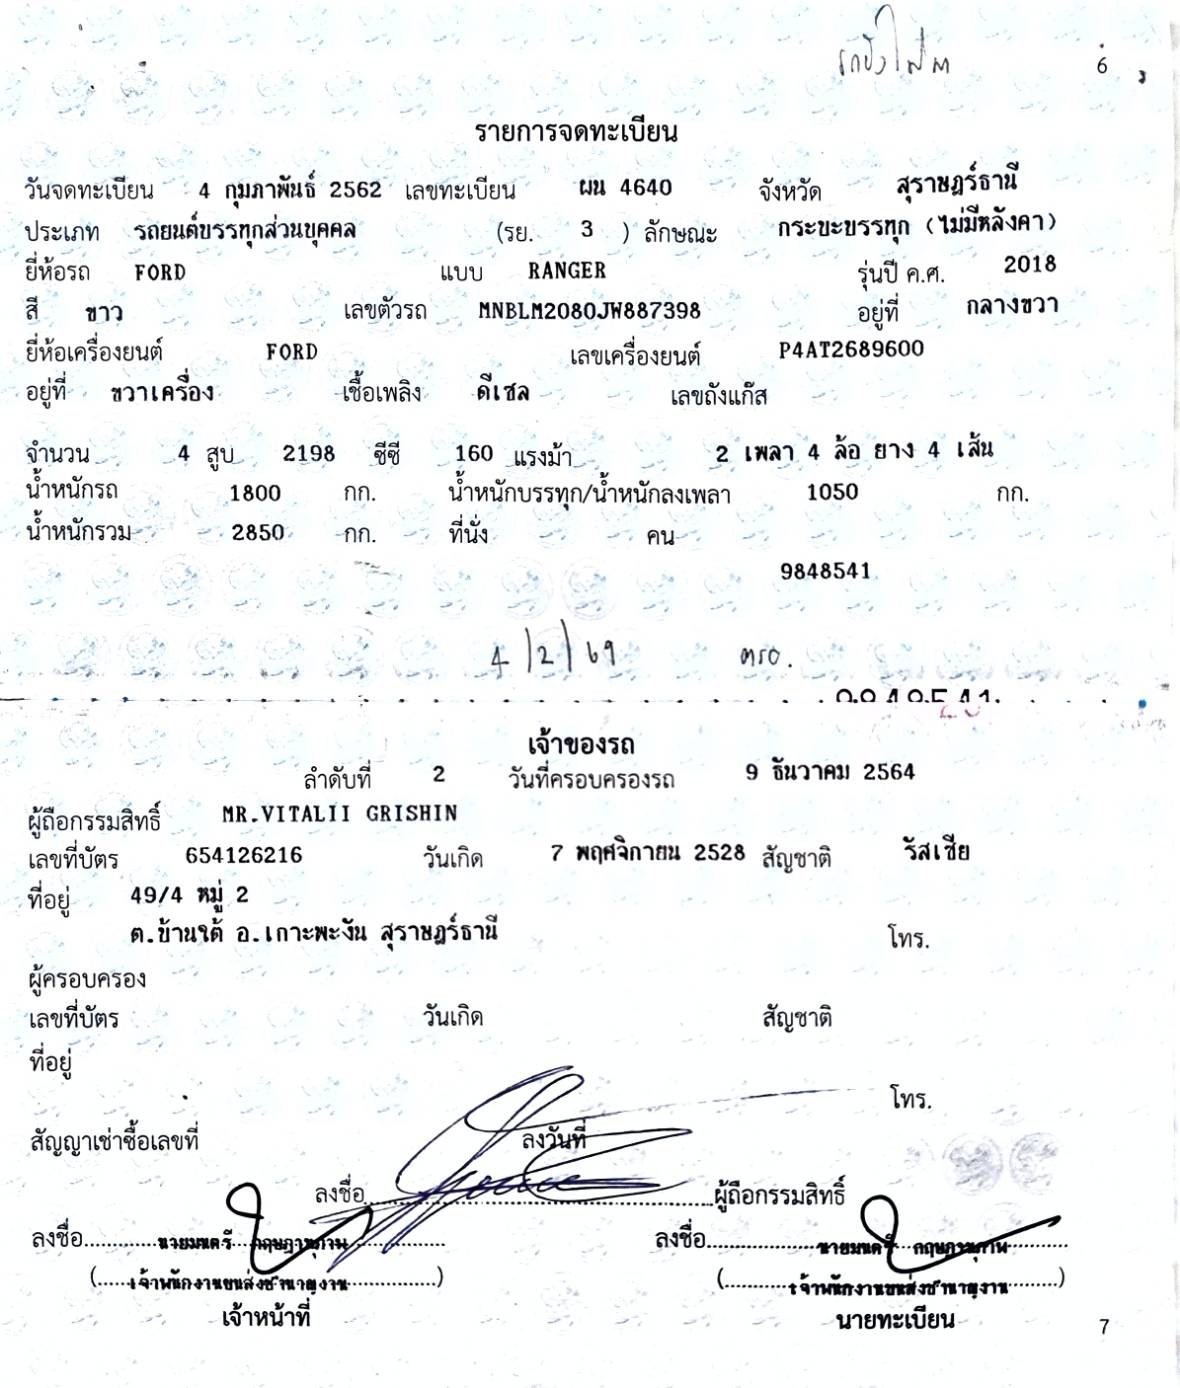 6
รายการจดทะเบียน
วันจดทะเบียน 4 กุมภาพันธ์ 2562 เลขทะเบียน ผน 4640 จังหวัด สุราษฎร์ธานี
ประเภท รถยนต์บรรทุกส่วนบุคคล (รย. 3 ) ลักษณะ กระบะบรรทุก (ไม่มีหลังคา)
ยี่ห้อรถ FORD แบบ RANGER รุ่นปี ค.ศ. 2018
สี ขาว เลขตัวรถ MNBLM2080JW887398 อยู่ที่ กลางขวา
ยี่ห้อเครื่องยนต์ FORD เลขเครื่องยนต์ P4AT2689600
อยู่ที่ ขวาเครื่อง เชื้อเพลิง ดีเซล เลขถังแก๊ส
จำนวน 4 สูบ 2198 ซีซี 160 แรงม้า 2 เพลา 4 ล้อ ยาง 4 เส้น
น้ำหนักรถ 1800 กก. น้ำหนักบรรทุก/น้ำหนักลงเพลา 1050 กก.
น้ำหนักรวม 2850 กก. ที่นั่ง คน
9848541
4/2/69 ตรอ.
9848541
เจ้าของรถ
ลำดับที่ 2 วันที่ครอบครองรถ 9 ธันวาคม 2564
ผู้ถือกรรมสิทธิ์ MR.VITALII GRISHIN
เลขที่บัตร 654126216 วันเกิด 7 พฤศจิกายน 2528 สัญชาติ รัสเซีย
ที่อยู่ 49/4 หมู่ 2
ต.บ้านใต้ อ.เกาะพะงัน สุราษฎร์ธานี โทร.
ผู้ครอบครอง
เลขที่บัตร วันเกิด สัญชาติ
ที่อยู่
โทร.
สัญญาเช่าซื้อเลขที่ ลงวันที่
ลงชื่อ ผู้ถือกรรมสิทธิ์
ลงชื่อ นายมนตรี กฤษฎานุภาพ ลงชื่อ นายมนตรี กฤษฎานุภาพ
(เจ้าพนักงานขนส่งชำนาญงาน) (เจ้าพนักงานขนส่งชำนาญงาน)
เจ้าหน้าที่ นายทะเบียน
7